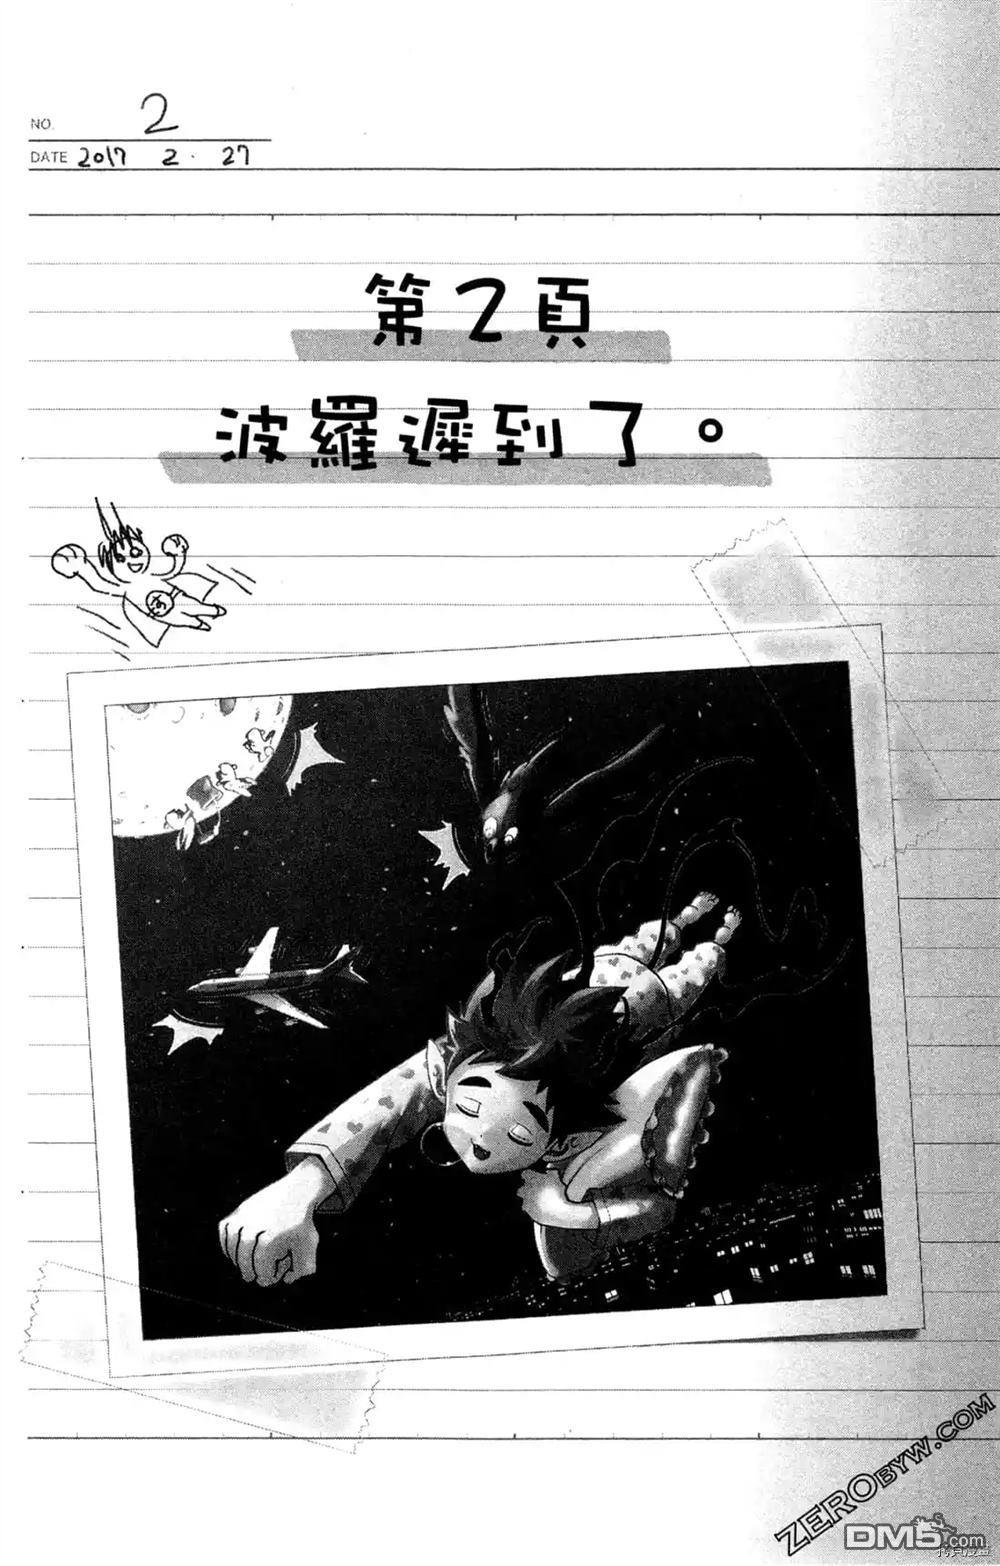 NO. 2
DATE 2017 2. 27
第2頁
波羅遲到了。
ZEROBYW.COM
DM5.com